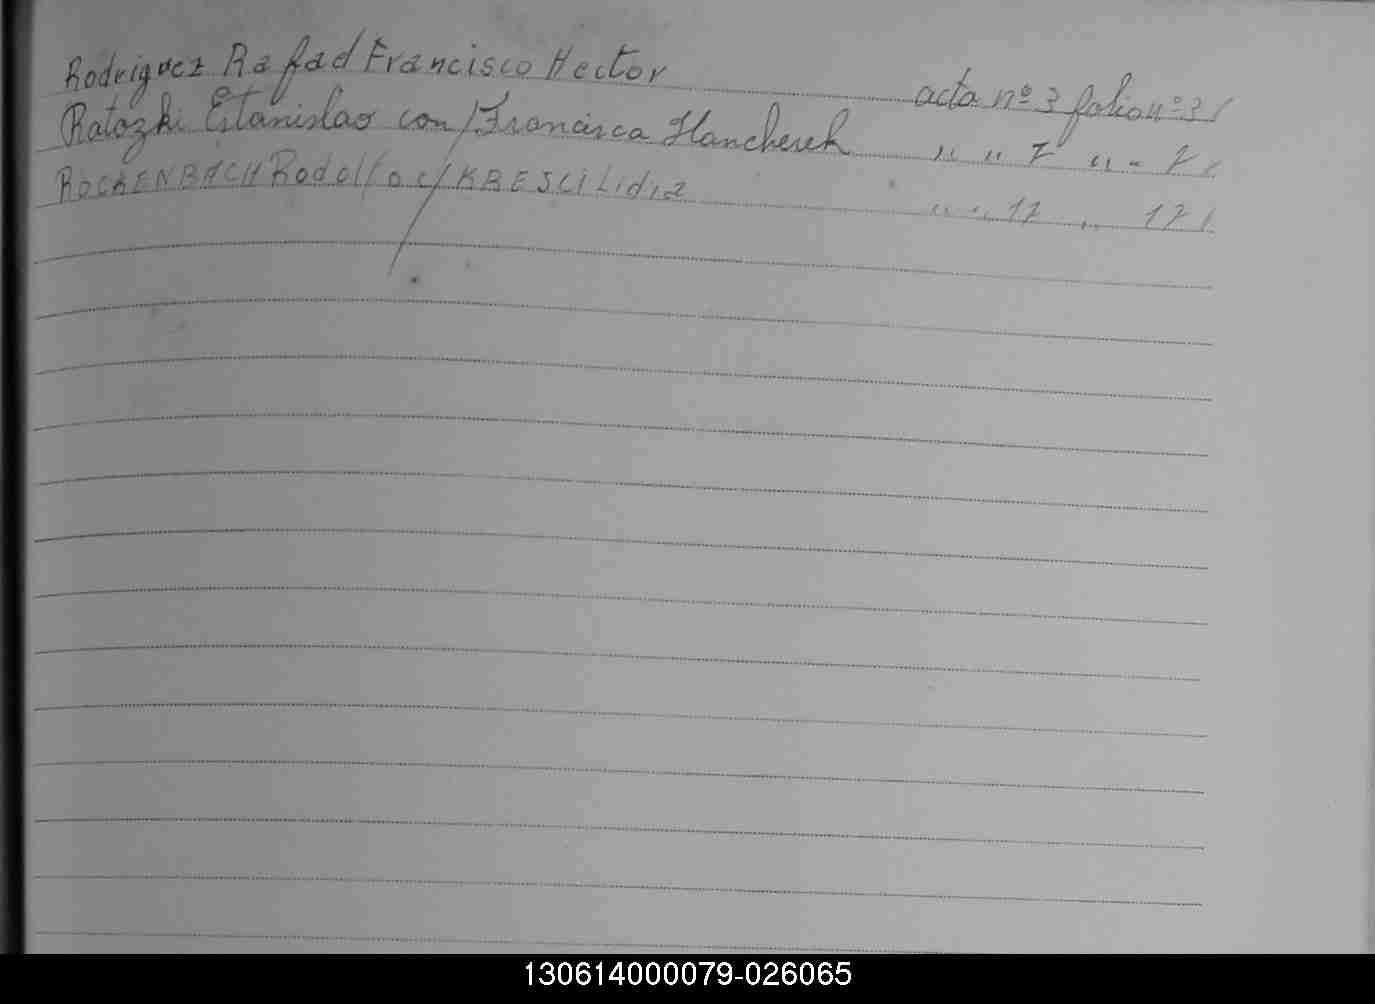 Rodriguez Rafael Francisco Hector acta nº 3 folio nº 3/
Ratozki Estanislao con/Francisca Hancherek " " 7 " " 7/
ROCKENBACH Rodolfo c/ KRESCI Lidia " " 17 " 17/
130614000079-026065